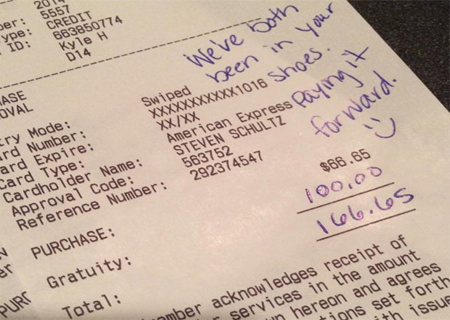 2014
5557
Type: CREDIT
ID: 663850774
Kyle H
D14
We've both
been in your
shoes.
Paying it
forward.
Mode: Swiped
Number: XXXXXXXXXXXX1016
Card Expire: XX/XX
Card Type: American Express
Cardholder Name: STEVEN SCHULTZ
Approval Code: 563752
Reference Number: 292374547
PURCHASE: $66.65
Gratuity: 100.00
Total: 166.65
acknowledges receipt of
services in the amount
hereon and agrees
set forth
with